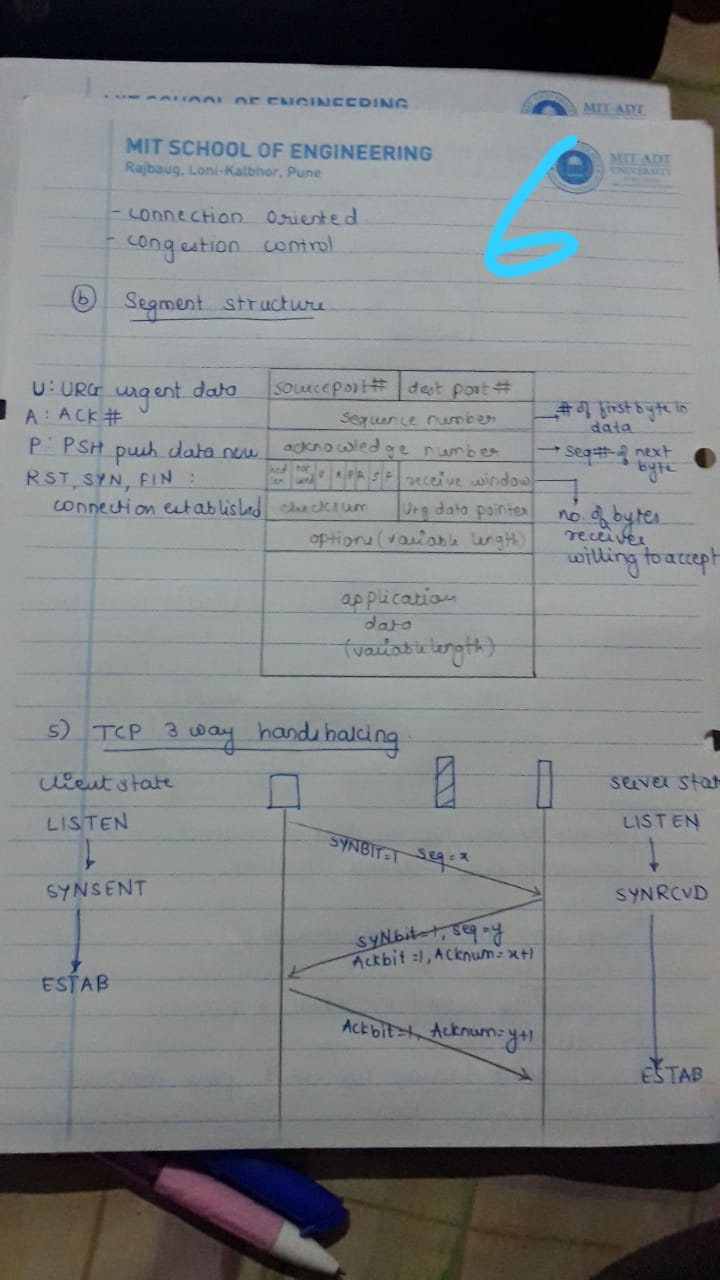 MIT SCHOOL OF ENGINEERING
MIT-ADT
MIT SCHOOL OF ENGINEERING
Rajbaug, Loni-Kalbhor, Pune
MIT-ADT
UNIVERSITY
6
- connection oriented
- congestion control
(b) Segment structure
U: URG urgent data
A: ACK #
P: PSH push data now
RST, SYN, FIN :
connection established
source port # dest port #
sequence number
acknowledge number
head len not used U A P R S F receive window
checksum Urg data pointer
options (variable length)
application
data
(variable length)
→ # of first byte in
data
→ seq # of next
byte
no. of bytes
receiver
willing to accept
5) TCP 3 way handshaking.
client state
server stat
LISTEN
LISTEN
SYNBIT=1 seq=x
SYNSENT
SYNRCVD
SYNbit=1, seq=y
Ackbit=1, Acknum=x+1
ESTAB
Ackbit=1, Acknum=y+1
ESTAB